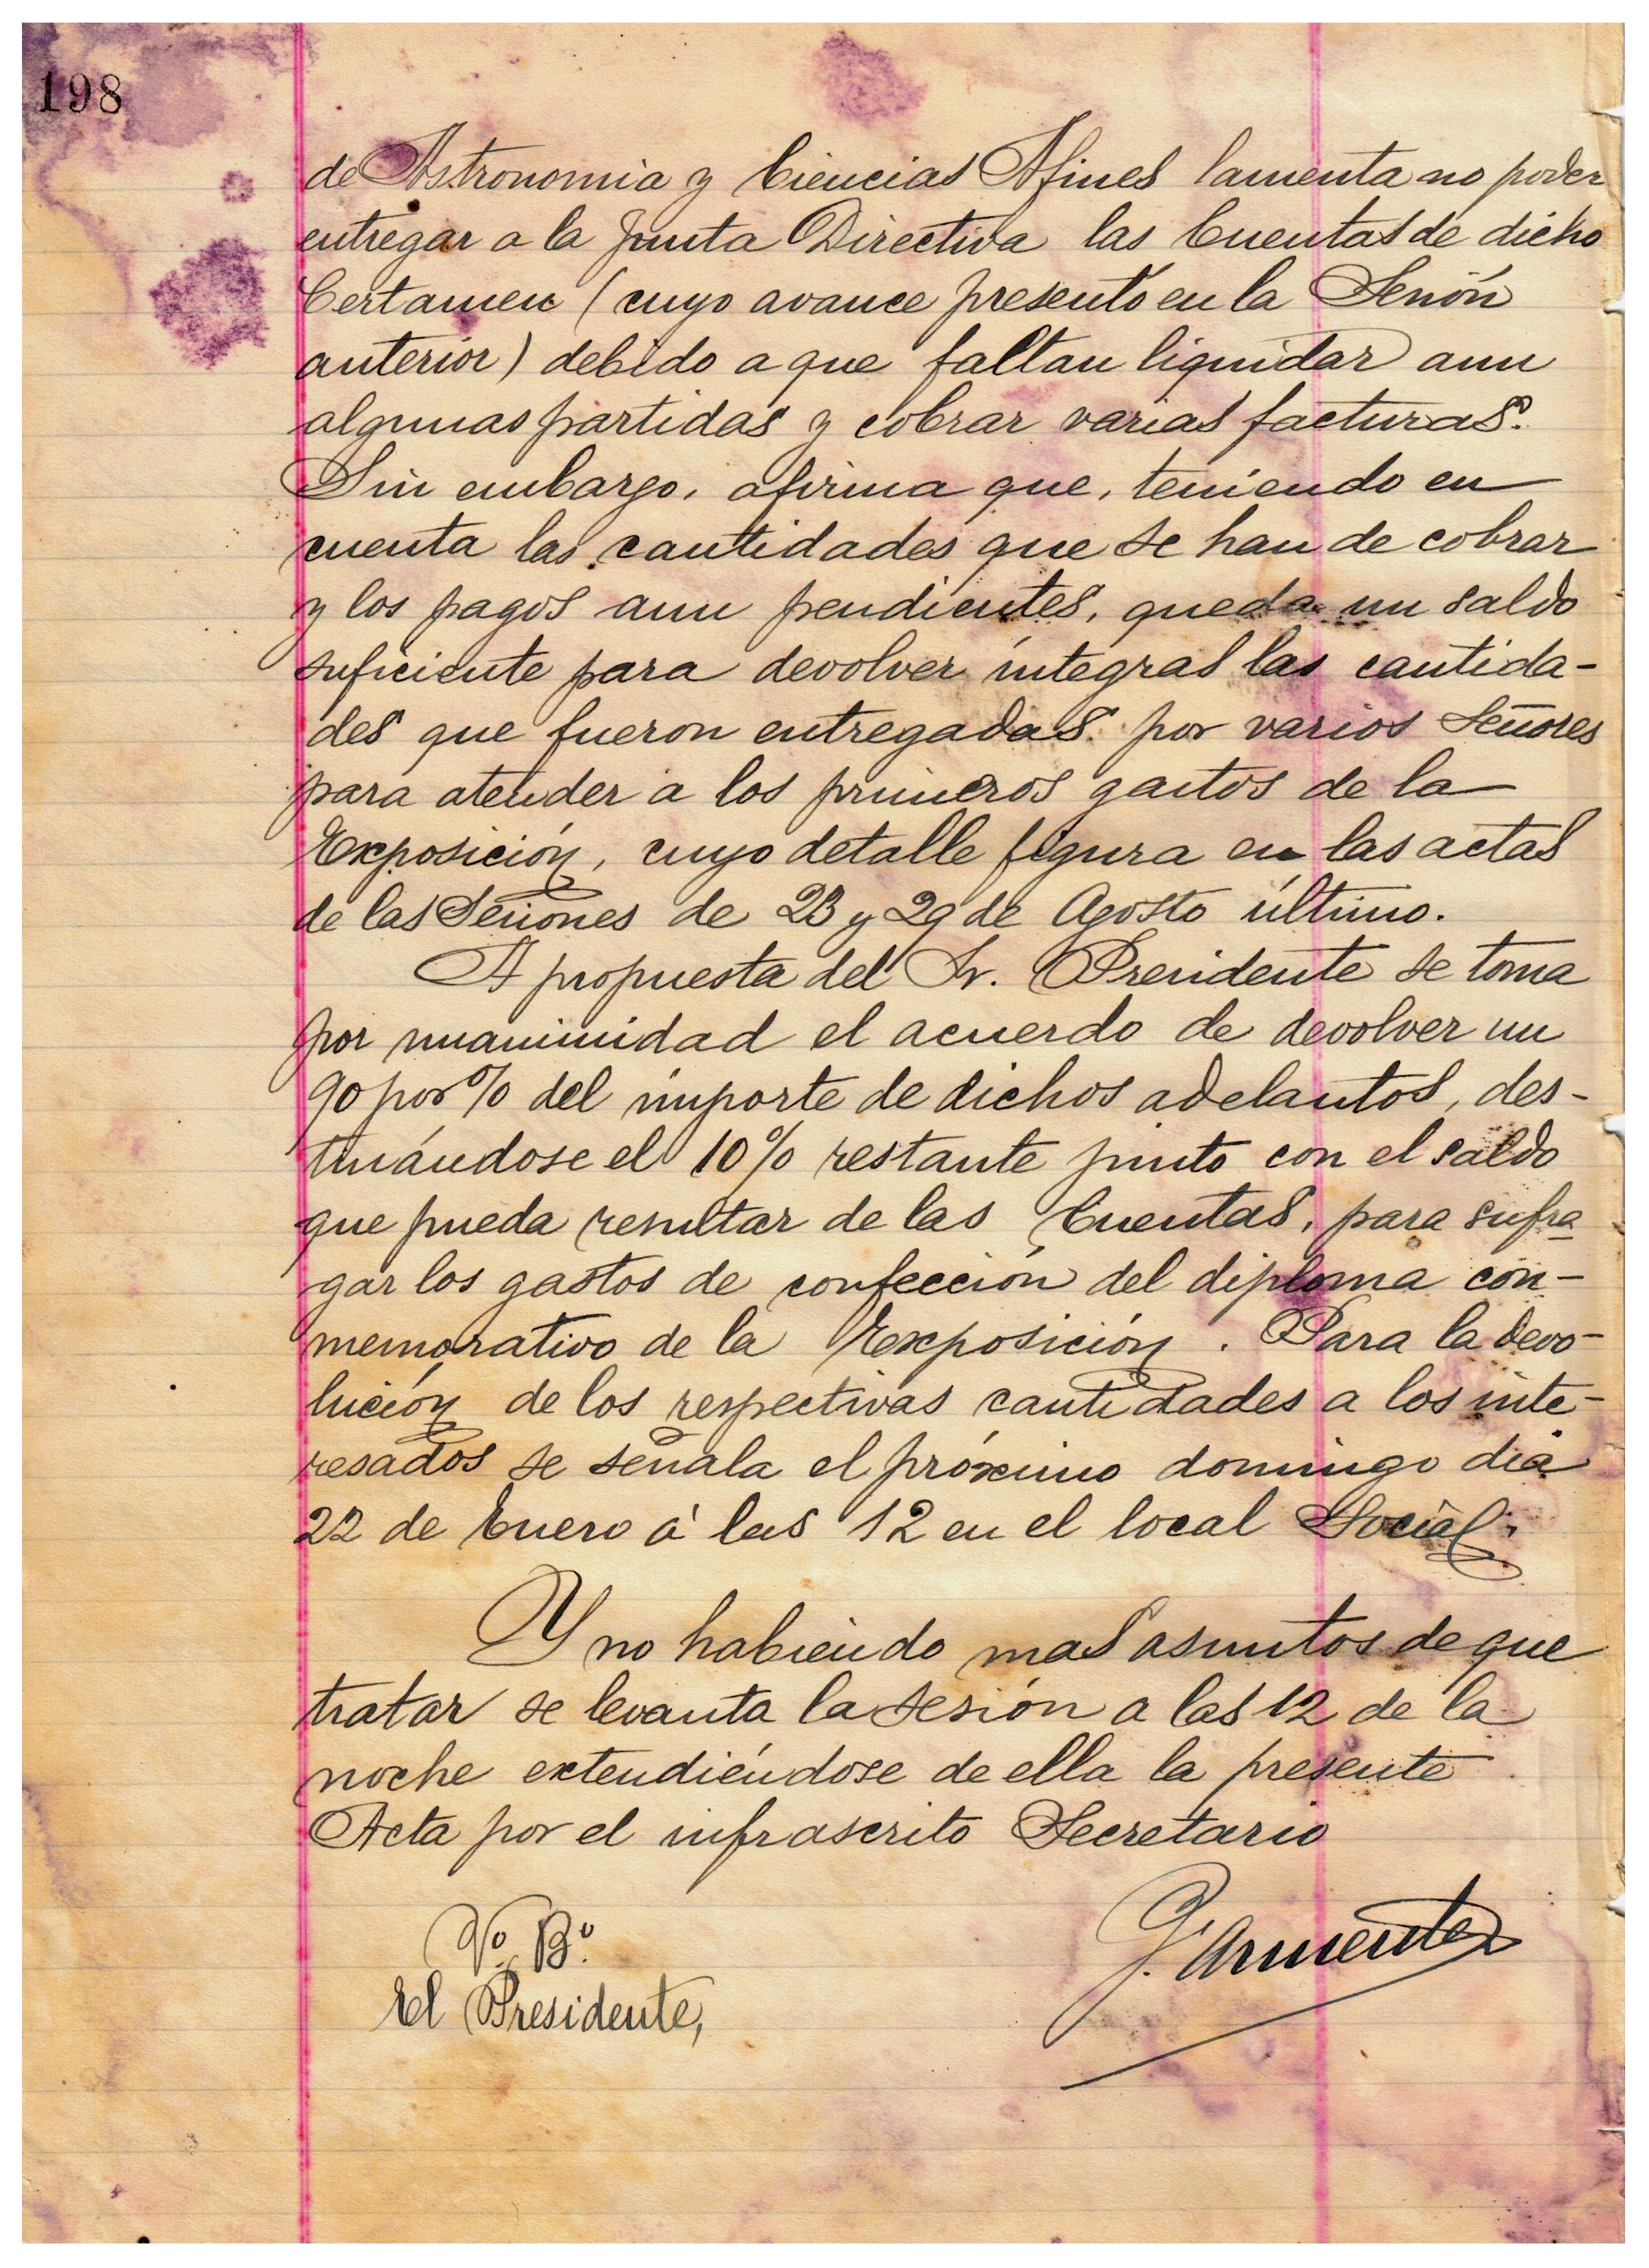 198
de Astronomia y Ciencias Afines lamenta no poder
entregar a la Junta Directiva las Cuentas de dicho
Certamen (cuyo avance presentó en la Sesión
anterior) debido a que faltan liquidar aun
algunas partidas y cobrar varias facturas.
Sin embargo, afirma que, teniendo en
cuenta las cantidades que se han de cobrar
y los pagos aun pendientes, queda un saldo
suficiente para devolver integras las cantida-
des que fueron entregadas por varios Señores
para atender a los primeros gastos de la
Exposición, cuyo detalle figura en las actas
de las Sesiones de 23 y 29 de Agosto último.
A propuesta del Sr. Presidente se toma
por unanimidad el acuerdo de devolver un
90 por % del importe de dichos adelantos, des-
tinándose el 10% restante junto con el saldo
que pueda resultar de las Cuentas, para sufra
gar los gastos de confección del diploma con-
memorativo de la Exposición. Para la devo-
lución de los respectivas cantidades a los inte-
resados se señala el próximo domingo dia
22 de Enero á las 12 en el local Social.
Y no habiendo mas asuntos de que
tratar se levanta la sesión a las 12 de la
noche extendiéndose de ella la presente
Acta por el infrascrito Secretario
Vº Bº
El Presidente,
J. Armenter